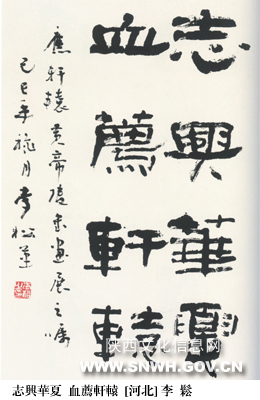 志興華夏
血薦軒轅
應軒轅黃帝陵書畫展之囑
己巳年 月李松草
陕西文化信息网
www.SNWH.gov.cn
志興華夏 血薦軒轅 [河北] 李 鬆